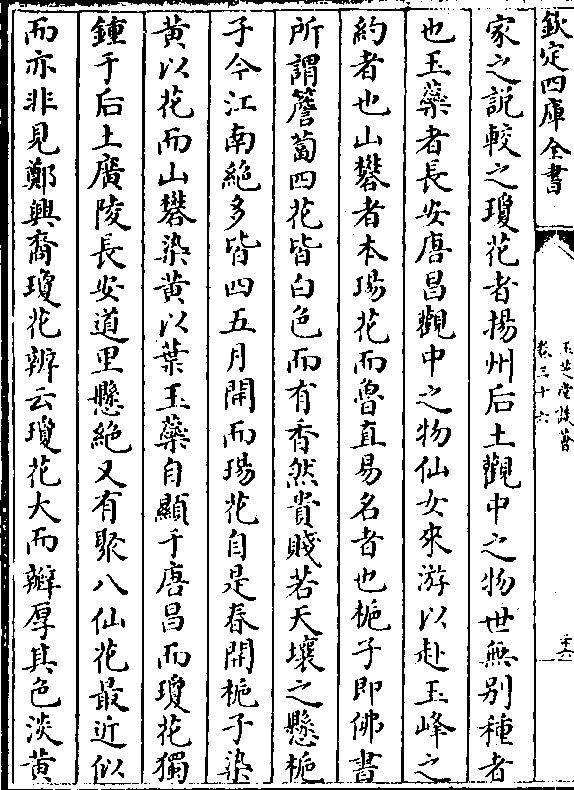 欽定四庫全書
玉芝堂談薈
卷三十六
家之說較之瓊花者揚州后土觀中之物世無别種者
也玉蘂者長安唐昌觀中之物仙女來游以赴玉峰之
約者也山礬者本瑒花而魯直易名者也梔子即佛書
所謂簷蔔四花皆白色而有香然貴賤若天壤之懸梔
子今江南絕多皆四五月開而瑒花自是春開梔子染
黄以花而山礬染黄以葉玉蘂自顯于唐昌而瓊花獨
鍾于后土廣陵長安道里懸絕又有聚八仙花最近似
而亦非見鄭興裔瓊花辨云瓊花大而瓣厚其色淡黄